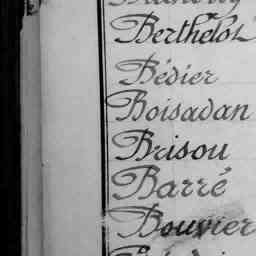 Berthelot
Bédier
Boisadan
Brisou
Barré
Bouvier